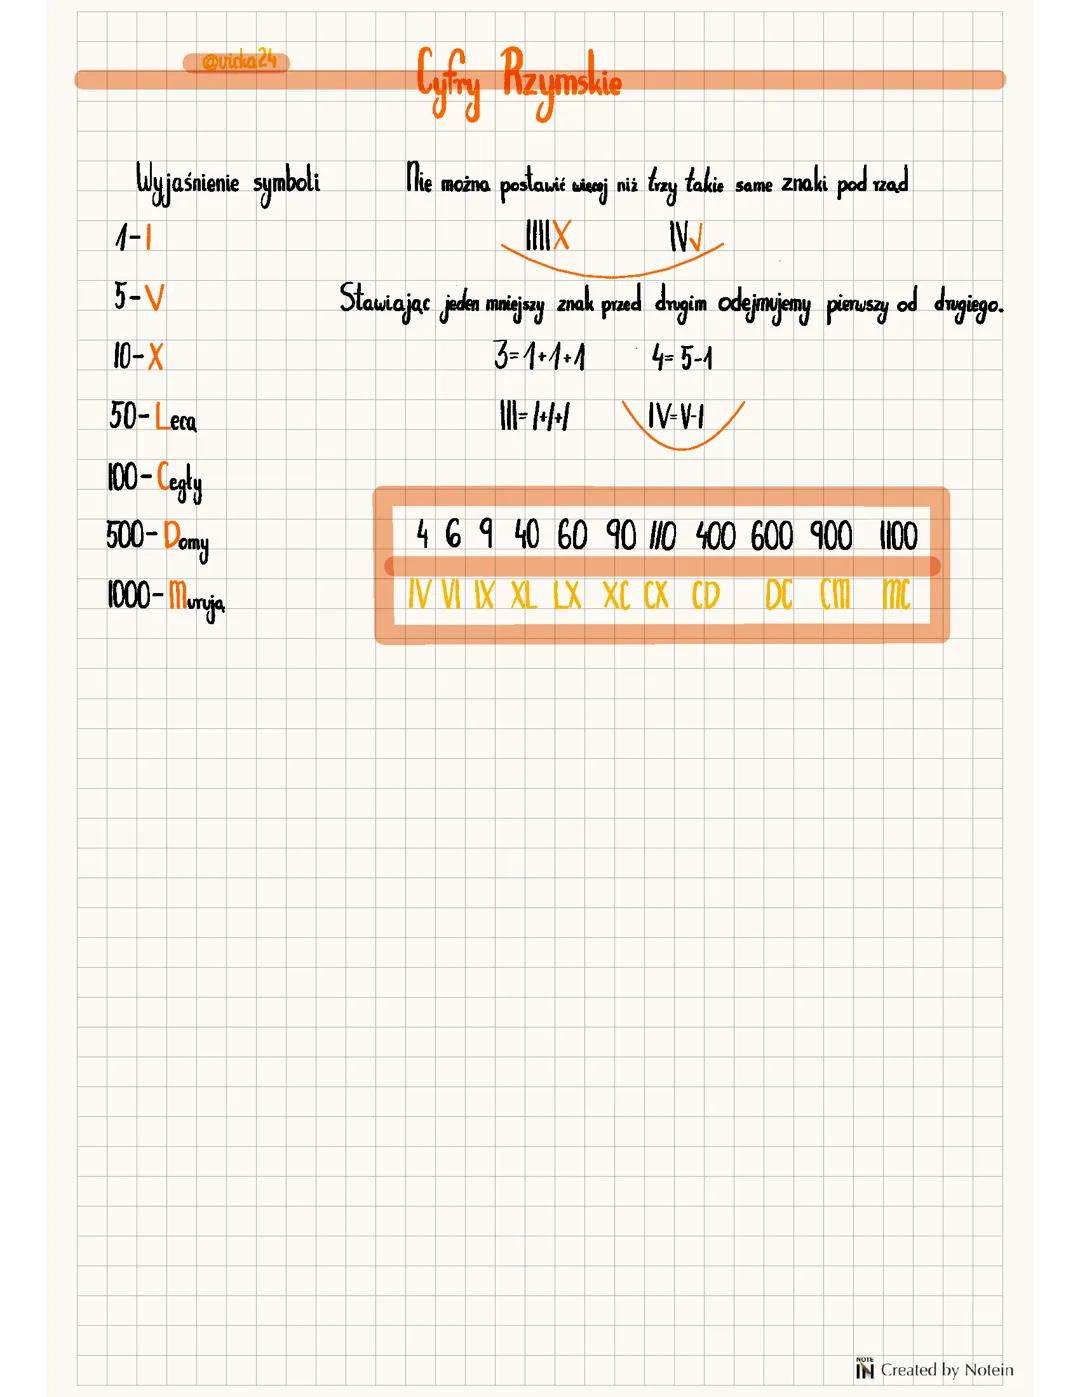 @vicka24
Cyfry Rzymskie
Wyjaśnienie symboli
1-I
5-V
10-X
50-Leca
100-Cegły
500-Domy
1000-Murują
Nie można postawić więcej niż trzy takie same znaki pod rząd
IIIIX IV✓
Stawiając jeden mniejszy znak przed drugim odejmujemy pierwszy od drugiego.
3=1+1+1 4=5-1
III=I+I+I IV=V-I
4 6 9 40 60 90 110 400 600 900 1100
IV VI IX XL LX XC CX CD DC CM MC
NOTE
IN Created by Notein